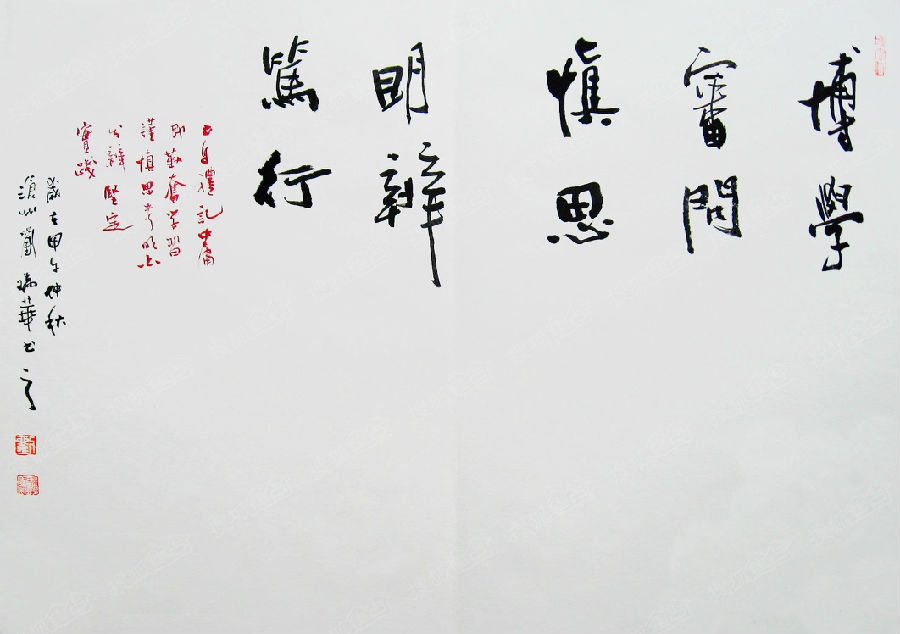 博學
審問
慎思
明辨
篤行
自禮記中庸
即勤奮學習
謹慎思考明止
分辨堅定
實踐
歲在甲午仲秋
瑞華書